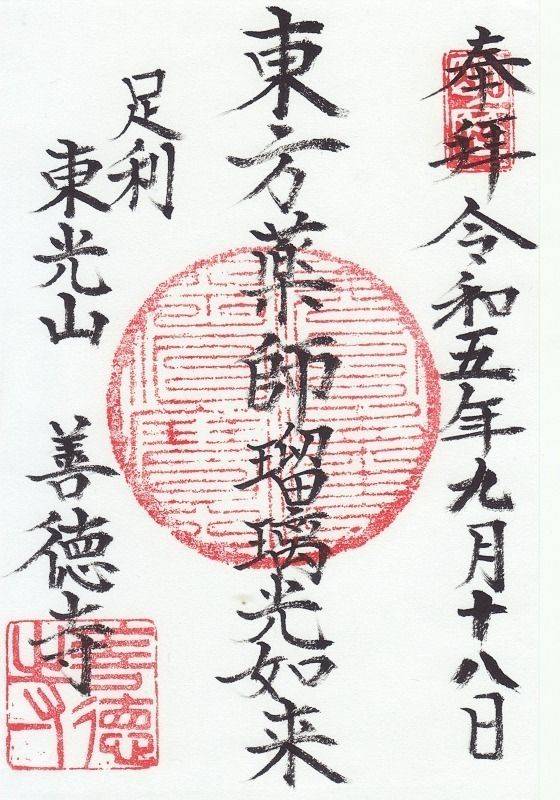 奉拝 令和五年九月十八日
東方薬師瑠璃光如来
足利
東光山 善徳寺
善徳寺